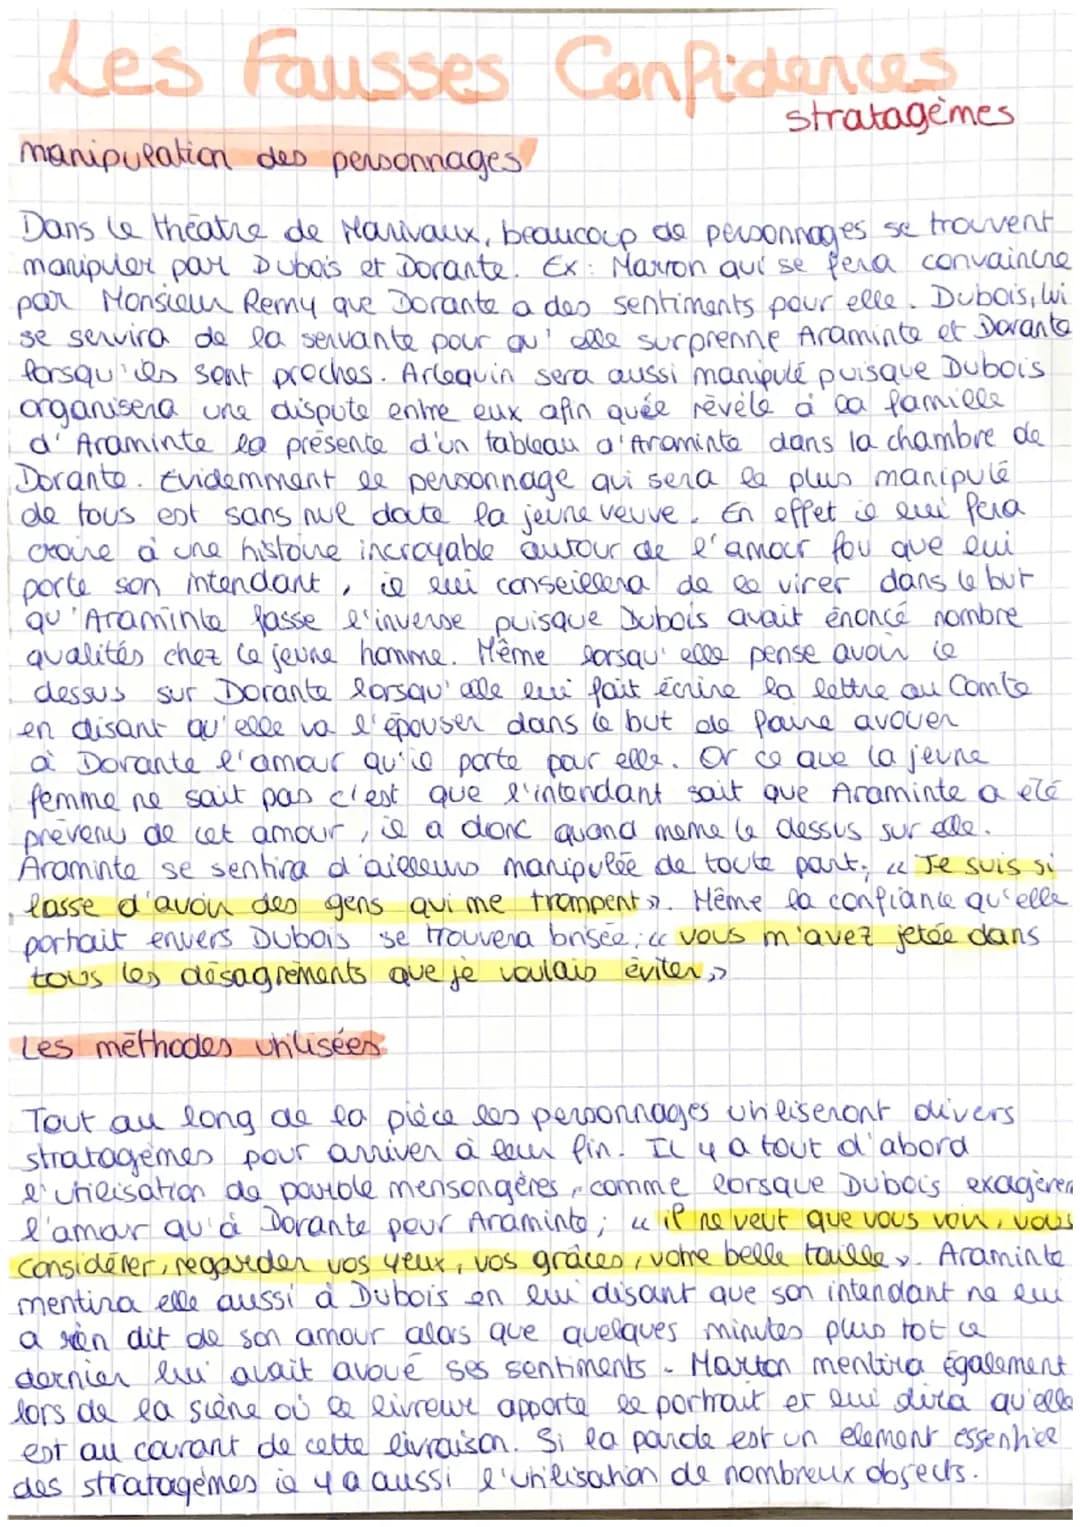 Les Fausses Confidences
stratagèmes
manipulation des personnages
Dans le théatre de Marivaux, beaucoup de personnages se trouvent
manipuler par Dubois et Dorante. Ex : Marron qui se fera convaincre
par Monsieur Remy que Dorante a des sentiments pour elle. Dubois, lui
se servira de la servante pour qu'elle surprenne Araminte et Dorante
lorsqu'ils sont proches. Arlequin sera aussi manipulé puisque Dubois
organisera une dispute entre eux afin qu'il révèle à la famille
d'Araminte la présente d'un tableau d'Araminte dans la chambre de
Dorante. Evidemment le personnage qui sera le plus manipulé
de tous est sans nul doute la jeune veuve. En effet il lui fera
croire à une histoire incroyable autour de l'amour fou que lui
porte son intendant, il lui conseillera de le virer dans le but
qu'Araminte fasse l'inverse puisque Dubois avait énoncé nombre
qualités chez le jeune homme. Même lorsqu'elle pense avoir le
dessus sur Dorante lorsqu'elle lui fait écrire la lettre au Comte
en disant qu'elle va l'épouser dans le but de faire avouer
à Dorante l'amour qu'il porte pour elle. Or ce que la jeune
femme ne sait pas c'est que l'intendant sait que Araminte a été
prévenu de cet amour, il a donc quand meme le dessus sur elle.
Araminte se sentira d'ailleurs manipulée de toute part; « Je suis si
lasse d'avoir des gens qui me trompent ». Même la confiance qu'elle
portait envers Dubois se trouvera brisée; « vous m'avez jetée dans
tous les désagréments que je voulais éviter »
Les méthodes utilisées
Tout au long de la pièce les personnages utiliseront divers
stratagèmes pour arriver à leur fin. Il y a tout d'abord
l'utilisation de parole mensongères, comme lorsque Dubois exagèrer
l'amour qu'à Dorante pour Araminte; « il ne veut que vous voir, vous
considérer, regarder vos yeux, vos grâces, votre belle taille ». Araminte
mentira elle aussi à Dubois en lui disant que son intendant ne lui
a rien dit de son amour alors que quelques minutes plus tot ce
dernier lui avait avoué ses sentiments. Marton mentira également
lors de la scène où le livreur apporte le portrait et lui dira qu'elle
est au courant de cette livraison. Si la parole est un element essentiel
des stratagèmes il y a aussi l'utilisation de nombreux objects.